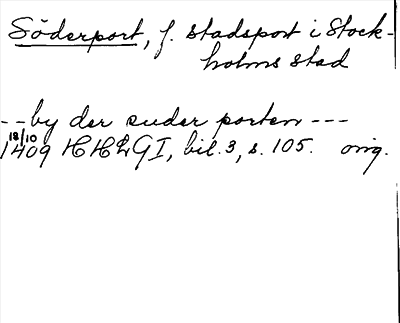 Söderport, f. stadsport i Stock-
holms stad
--by der suder porten---
18/10
1409 HHLGI, bil. 3, s. 105. orig.